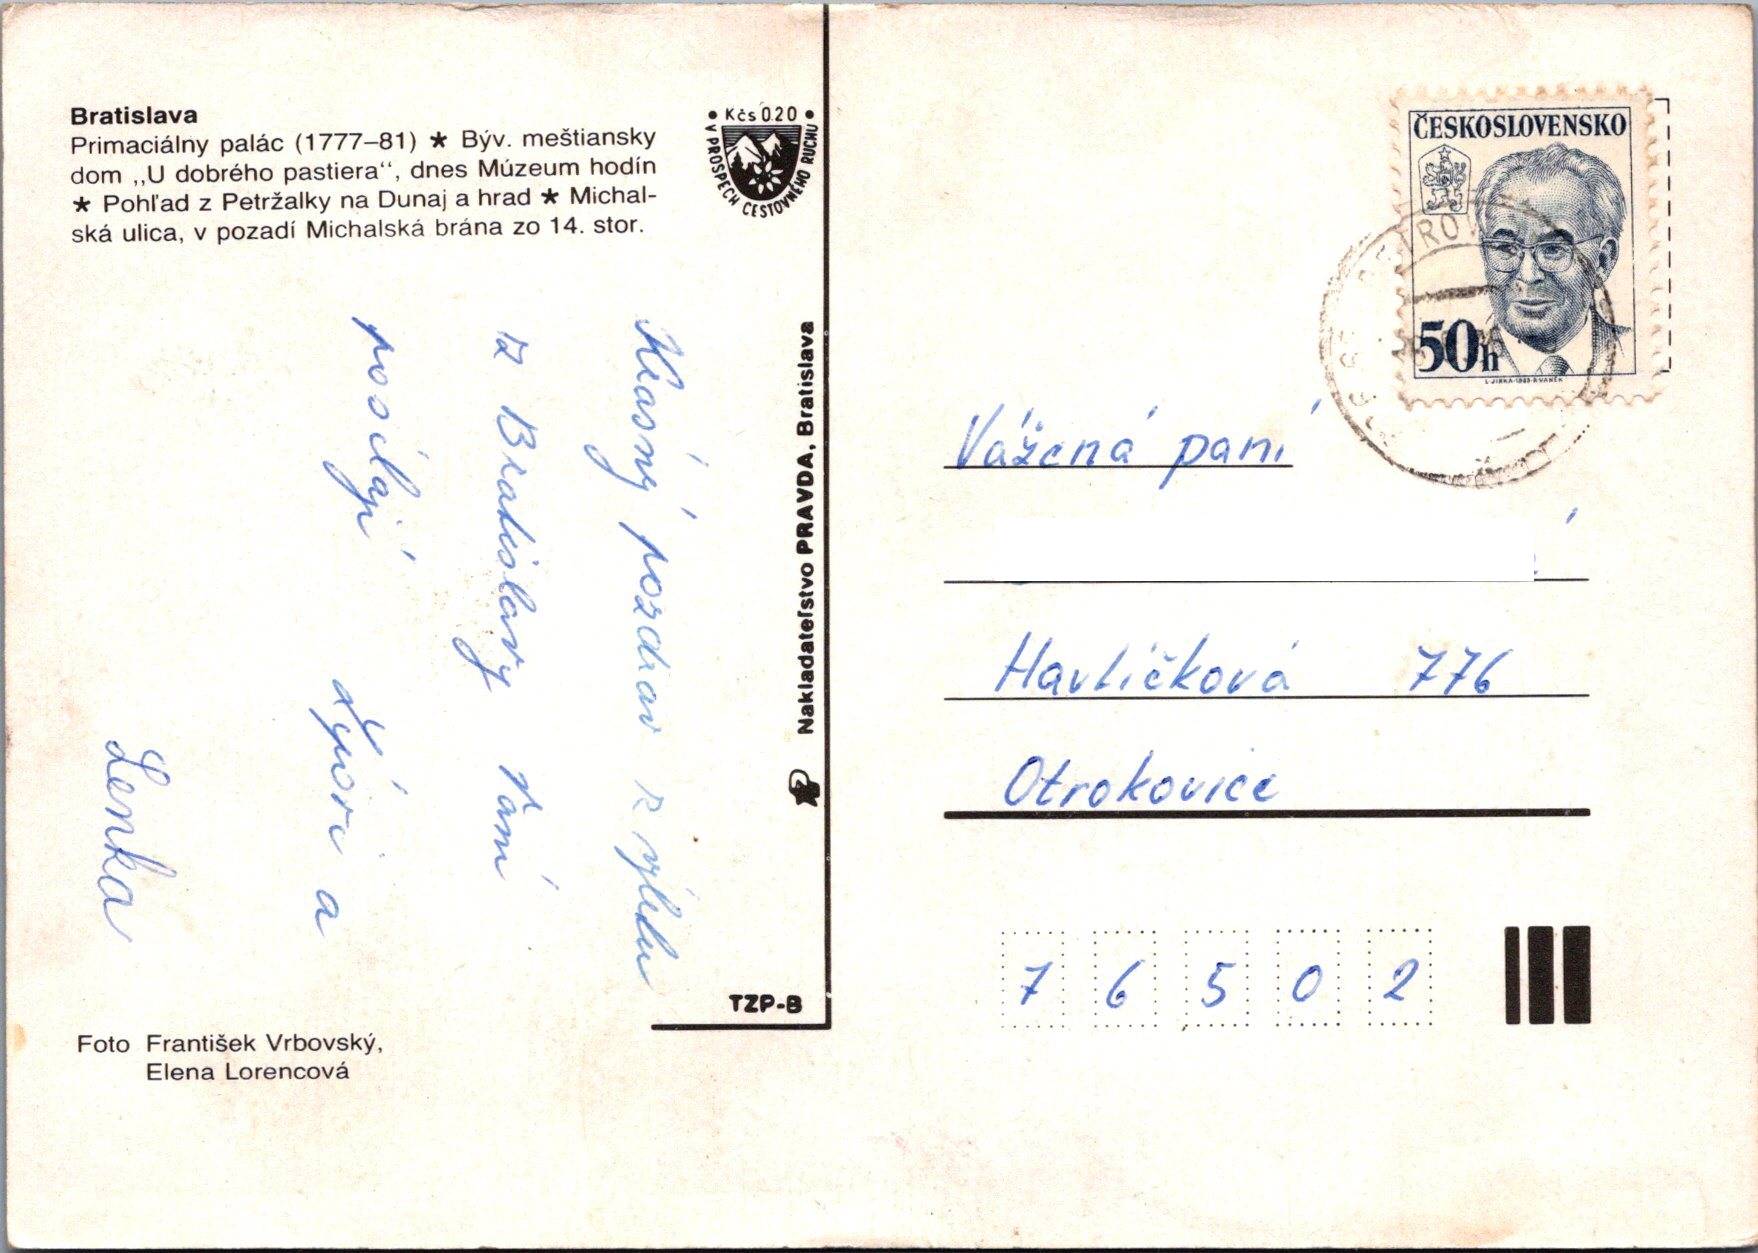 Bratislava
Primaciálny palác (1777–81) ★ Býv. meštiansky
dom „U dobrého pastiera“, dnes Múzeum hodín
★ Pohľad z Petržalky na Dunaj a hrad ★ Michal-
ská ulica, v pozadí Michalská brána zo 14. stor.
• Kčs 0.20 •
V PROSPECH CESTOVNÉHO RUCHU
Krásný pozdrav z výletu
z Bratislavy Vám
posílají
a
Lenka
Nakladateľstvo PRAVDA, Bratislava
TZP-B
Foto František Vrbovský,
Elena Lorencová
ČESKOSLOVENSKO
50h
L.JIRKA-1983-R.VANĚK
Vážená paní
Havlíčková 776
Otrokovice
7 6 5 0 2